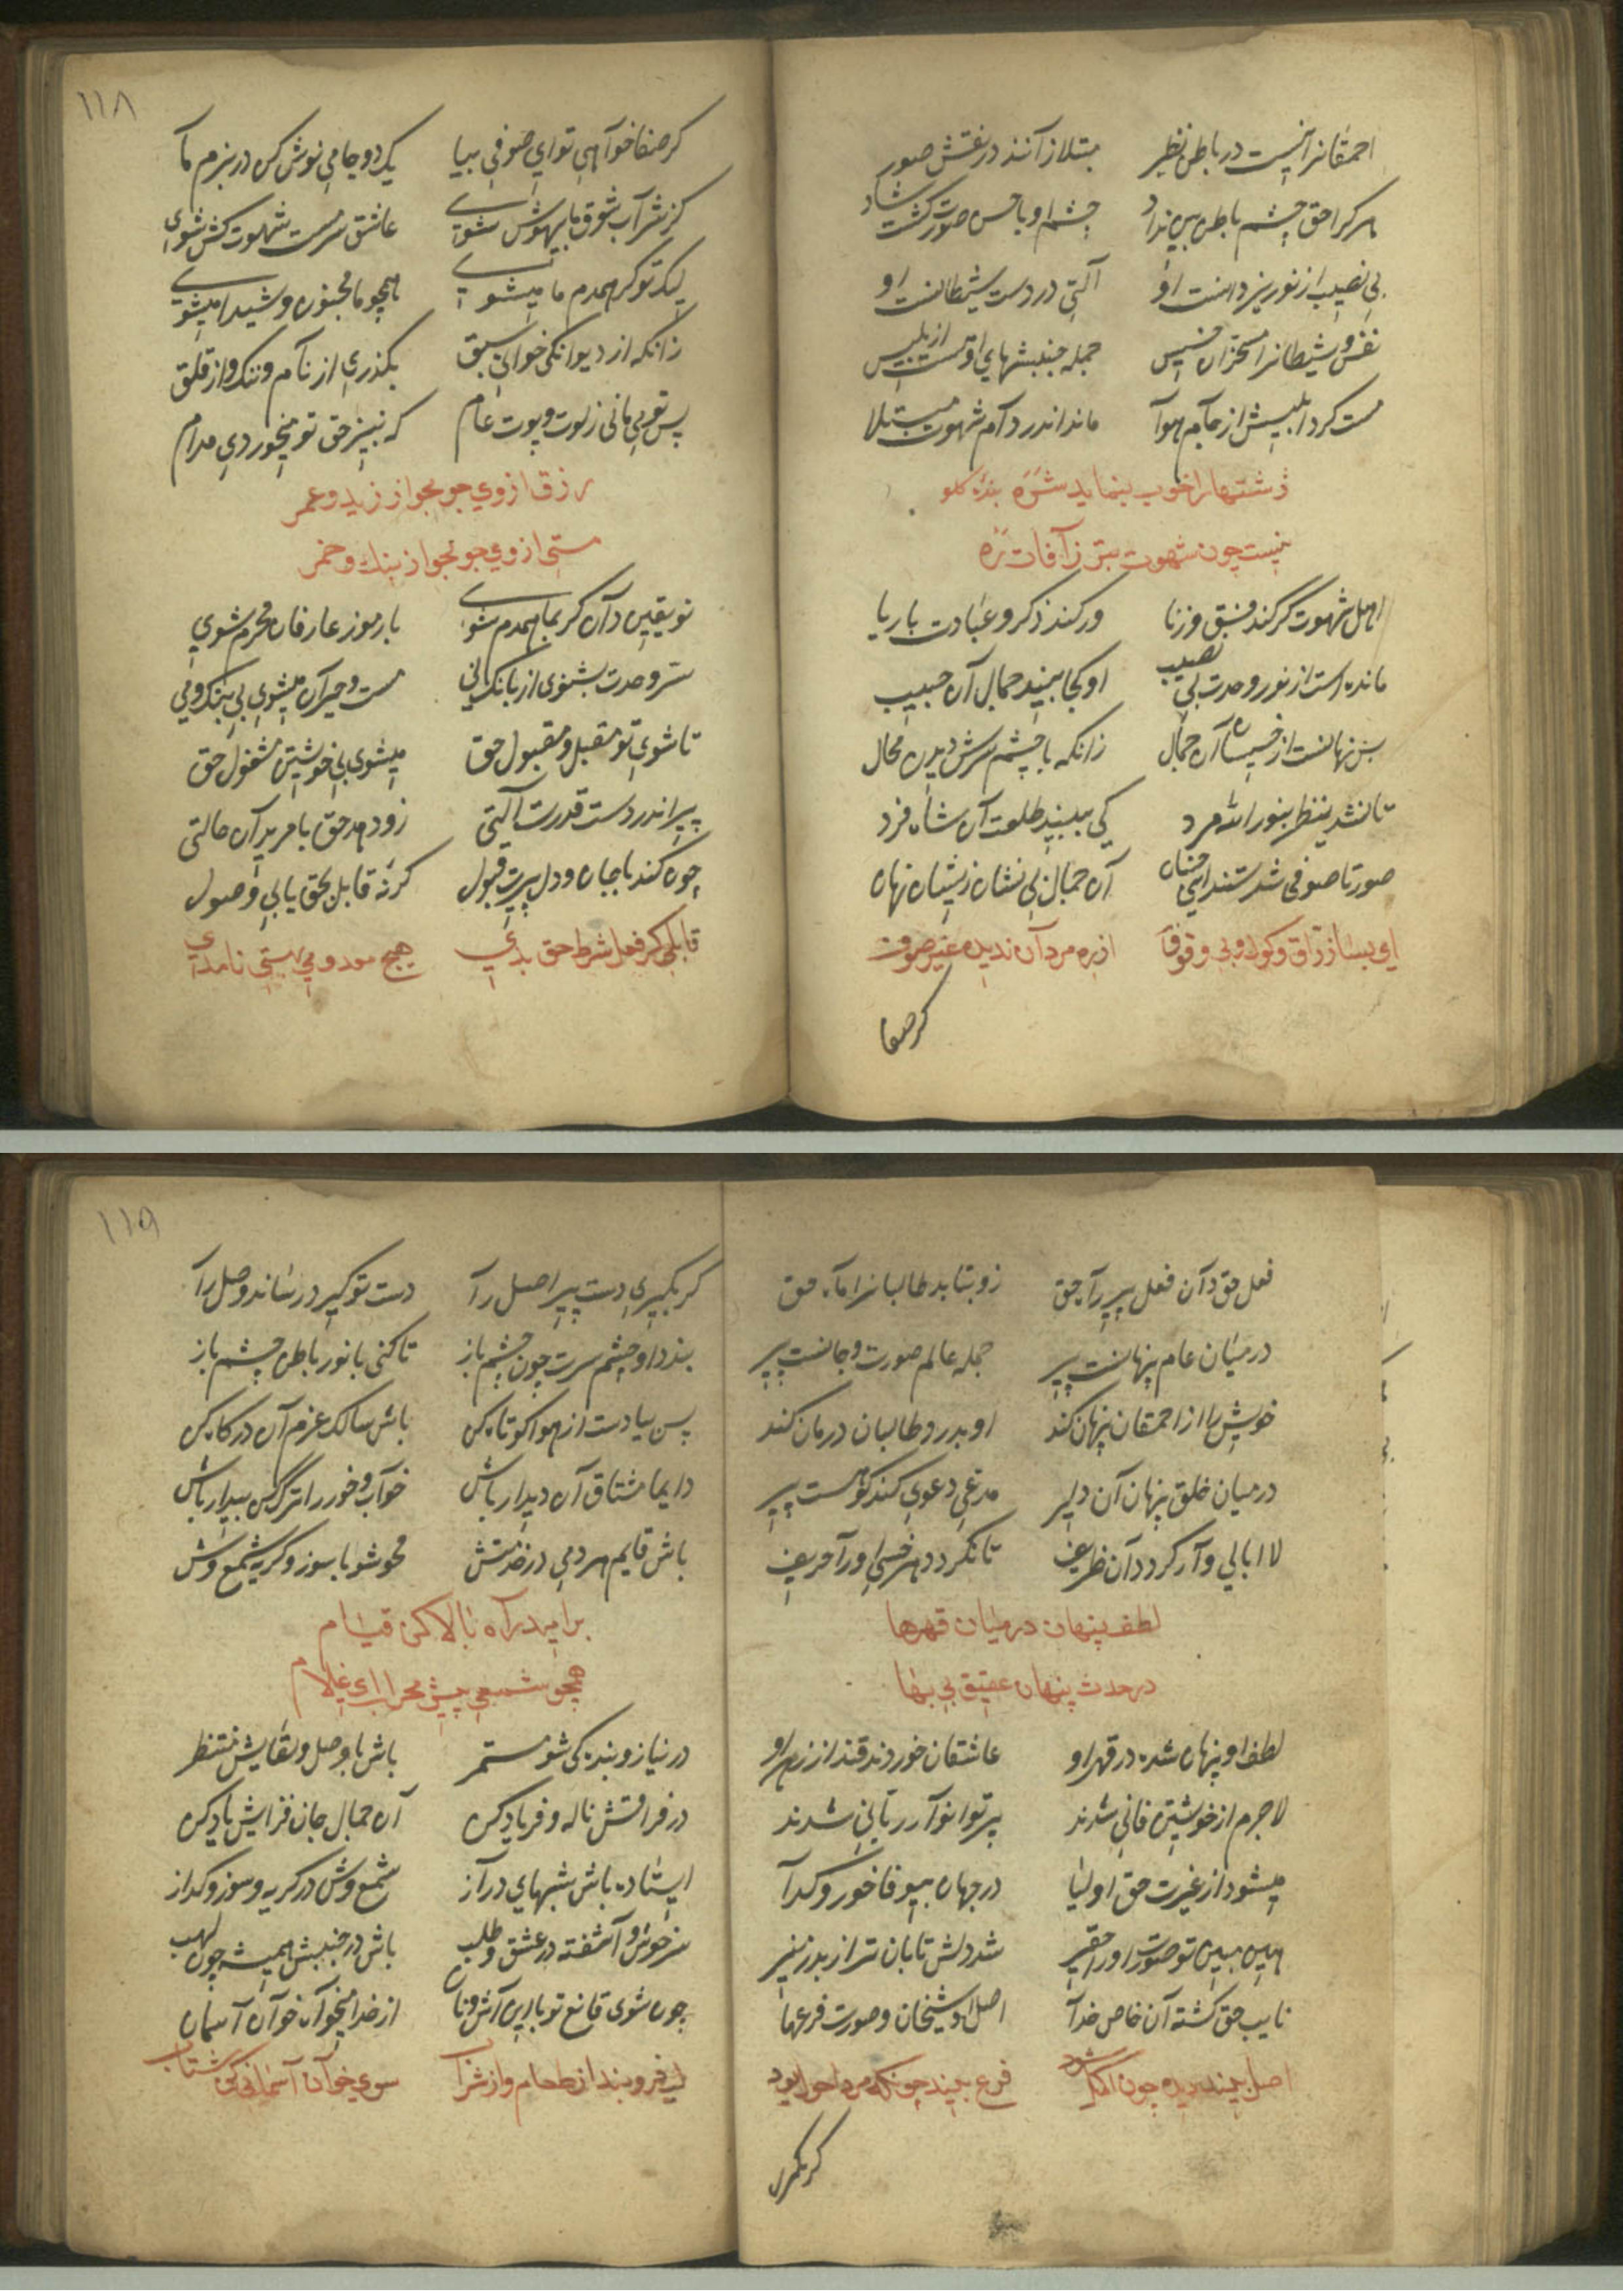 احمقانرا نیست در باطن نظر مبتلا زآنند در نقش صور
هر کرا حق چشم باطن بین نداد چشم او با حس صورت کشت شاد
بی نصیب از نور یزدانست او آلتی در دست شیطانست او
نفس و شیطانرا مسخر آن خسیس جمله جنبشهای اوست از بلیس
مست کرد ابلیسش از جآم هوآ ماند اندر دآم شهوت مبتلا
زشتهارا خوب بنماید شره
نیست چون شهوت بتر زآفات ره
اهل شهوت کر کند فسق و زنا ور کند ذکر و عبادت با ریا
مانده است از نور وحدت بی نصیب او کجا بیند جمال آن حبیب
بس نهانست از خسیسان آن جمال زانکه با چشم سرش دیدن محال
تا نشد ینظر بنور الله مرد کی ببیند طلعت آن شاه فرد
صورتا صوفی شدستند این خسان آن جمال بی نشان زیشان نهان
ای بسا زراق و کول و بی وقوف از ره مردآن ندیده غیر صوف
کر صفا
۱۱۸
کر صفا خوآهی تو ای صوفی بیا یک دو جامی نوش کن در بزم مآ
کز شرآب شوق ما بیهوش شوی عاشق سرمست شهوت کش شوی
لیک تو کر همدم ما میشوی همچو ما مجنون و شیدا میشوی
زانکه از دیوانکی خوانی سبق بکذری از نآم و ننک و از قلق
پس تو بی مانی ز لوت و پوت عام که نبیز حق تو میخوردی مدام
رزق از وی جو مجو از زید و عمر
مستی از وی جو مجو از بنک و خمر
تو یقین دآن کر بما همدم شوی با رموز عارفان محرم شوی
سر وحدت بشنوی از بانک نی مست و حیرآن میشوی بی بنک و می
تا شوی تو مقبل و مقبول حق میشوی بی خویشتن مشغول حق
پیر اندر دست قدرت آلتی زود دهد حق با مرید آن حالتی
چون کند با جان و دل پیرت قبول کر نه قابل بحق یابی وصول
قابلی کر فعل شرط حق بدی هیچ معدومی بهستی نامدی
فعل حق دآن فعل پیر رآه حق زو بتابد طالبانرا مآه حق
در میان عام پنهانست پیر جمله عالم صورت و جانست پیر
خویش را از احمقان پنهان کند او بدرد طالبان درمان کند
در میان خلق پنهان آن دلیر مدعی دعوی کند کو هست پیر
لاابالی وآر کردد آن ظریف تا نکردد هر خسی او رآ حریف
لطف پنهان در میان قهرها
در حدث پنهان عقیق بی بها
لطف او پنهان شده در قهر او عاشقان خوردند قند از زهر او
لاجرم از خویشتن فانی شدند پرتو انوآر ربانی شدند
میشود از غیرت حق اولیا در جهان بیوفا خور و کدآ
هین مبین تو صورت او را حقیر شد دلش تابان تر از بدر منیر
نایب حق کشته آن خاص خدآ اصل او شیخان و صورت فرعها
اصل بیند دیده چون اکمل شود فرع بیند چونکه مرد احول بود
کر بکیری
۱۱۹
کر بکیری دست پیر اصل رآ دست تو کیرد رساند وصل رآ
بندد او چشم سرت چون چشم باز تا کنی با نور باطن چشم باز
پس بیا دست از هوا کوتاه کن باش سالک عزم آن درکاه کن
دایما مشتاق آن دیدار باش خوآب و خور را ترک کن بیدار باش
باش قایم هر دمی در خدمتش محو شو با سوز و کریه شمع وش
بر امید رآه بالا کن قیام
همچو شمعی پیش محراب ای غلام
در نیاز و بنده کی شو مستمر باش با وصل و لقایش منتظر
در فراقش ناله و فریاد کن آن جمال جان فزایش یاد کن
ایستاده باش شبهای درآز شمع وش در کریه و سوز و کداز
سرخوش و آشفته در عشق و طلب باش در جنبش همیشه چون لهب
چون شوی قانع تو با این آش و نان از خدا میخوآه خوآن آسمان
لب فرو بند از طعام و از شرآب سوی خوآن آسمانی کن شتاب